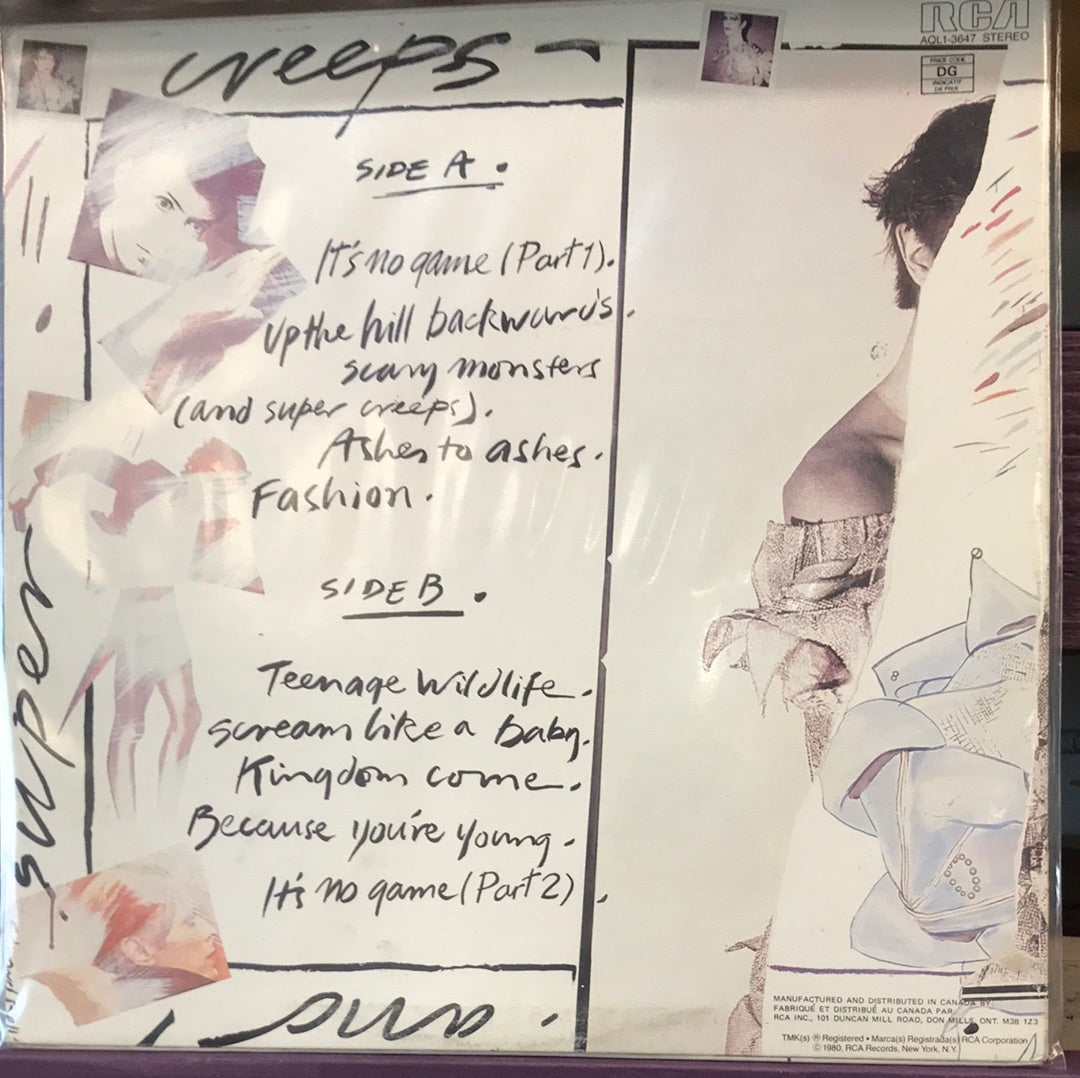 creeps -
RCA
AQL1-3647 STEREO
PRICE CODE
DG
INDICATIF
DE PRIX
SIDE A .
It's no game (Part 1).
Up the hill backwards.
scary monsters
(and super creeps).
Ashes to ashes.
Fashion.
SIDE B .
Teenage wildlife.
scream like a baby.
Kingdom come.
Because you're young.
It's no game (Part 2) .
super
and
MANUFACTURED AND DISTRIBUTED IN CANADA BY:
FABRIQUÉ ET DISTRIBUÉ AU CANADA PAR
RCA INC., 101 DUNCAN MILL ROAD, DON MILLS, ONT. M3B 1Z3
TMK(s) ® Registered • Marca(s) Registrada(s) RCA Corporation
© 1980, RCA Records, New York, N.Y.